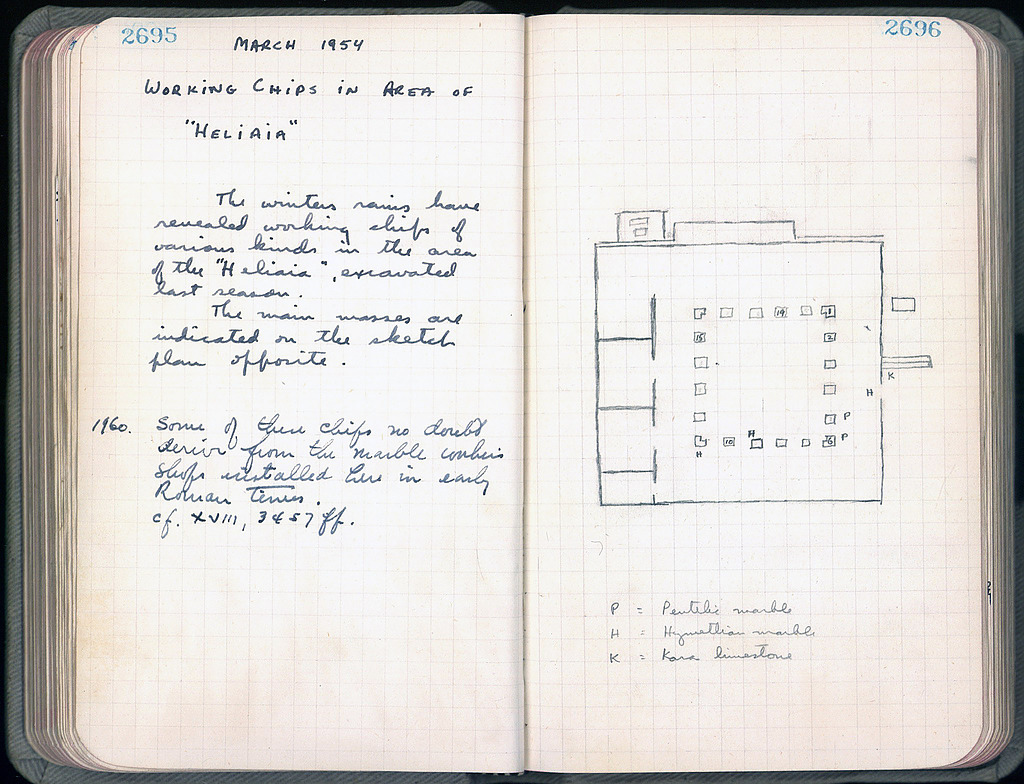 2695
MARCH 1954
WORKING CHIPS IN AREA OF
"HELIAIA"
The winters rains have
revealed working chips of
various kinds in the area
of the "Heliaia", excavated
last season.
The main masses are
indicated on the sketch
plan opposite.
1960. Some of these chips no doubt
derive from the marble workers
shops installed here in early
Roman times.
cf. XVIII, 3457 ff.
2696
19
15
2
K
H
P
H
P
10
6
H
P = Pentelic marble
H = Hymettian marble
K = Kara limestone